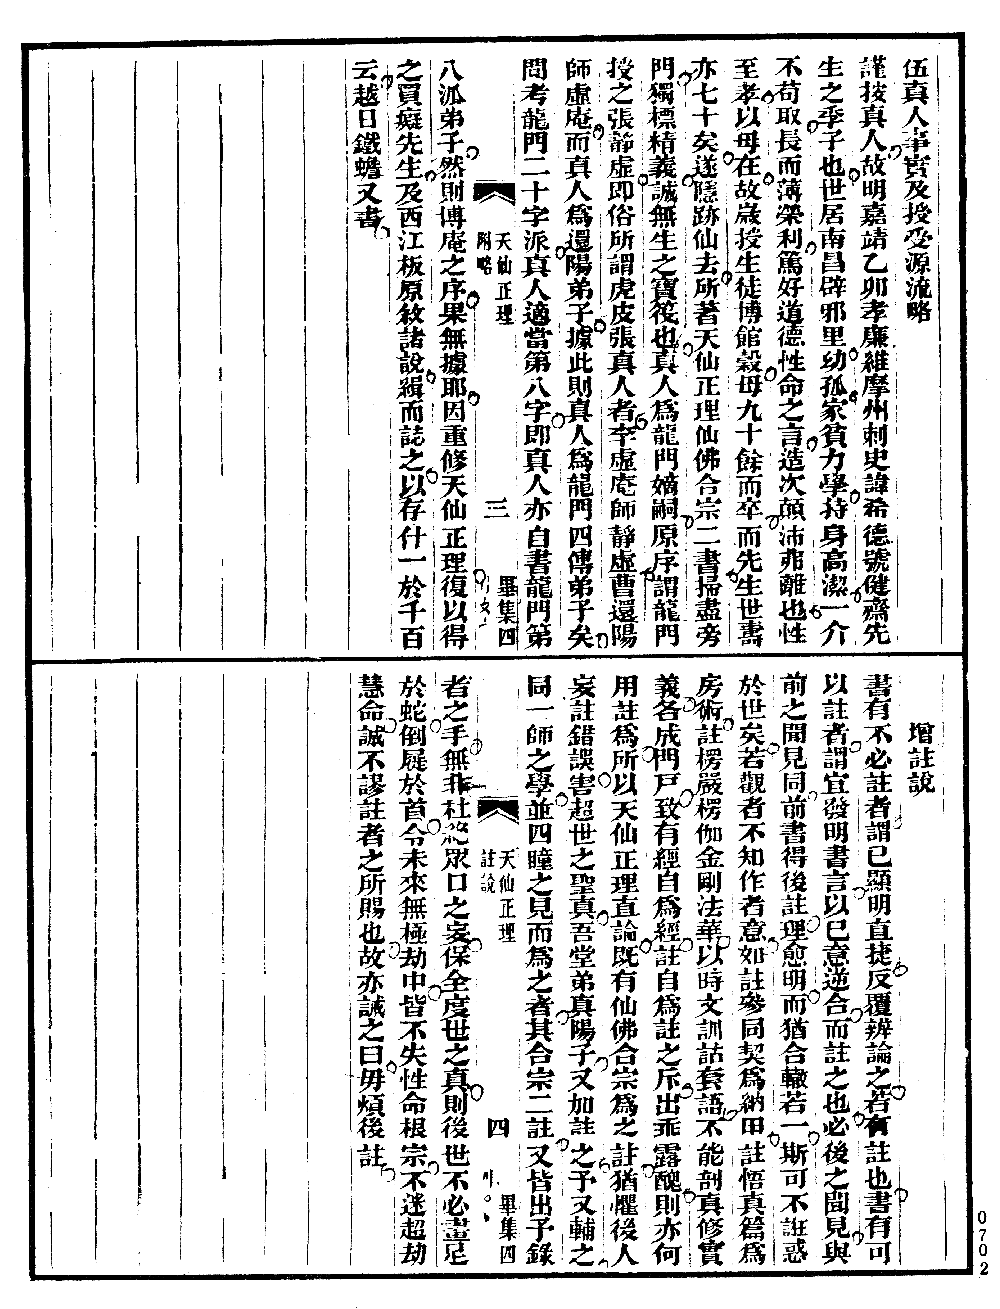 伍真人事實及授受源流略
謹按真人故明嘉靖乙卯孝廉維摩州刺史諱希德號健齋先
生之季子也世居南昌辟邪里幼孤家貧力學持身高潔一介
不苟取長而薄榮利篤好道德性命之言造次顛沛弗離也性
至孝以母在故歲授生徒博館穀母九十餘而卒而先生世壽
亦七十矣遂隱跡仙去所著天仙正理仙佛合宗二書掃盡旁
門獨標精義誠無生之寶筏也真人爲龍門嫡嗣原序謂龍門
授之張靜虛即俗所謂虎皮張真人者李虛庵師靜虛曹還陽
師虛庵而真人爲還陽弟子據此則真人爲龍門四傳弟子矣
間考龍門二十字派真人適當第八字即真人亦自書龍門第
天仙正理
附略
三
畢集四
八派弟子然則博庵之序果無據耶因重修天仙正理復以得
之買癡先生及西江板原敘諸說緝而誌之以存什一於千百
云越日鐵蟾又書
增註說
書有不必註者謂已顯明直捷反覆辨論之若有註也書有可
以註者謂宜發明書言以已意逆合而註之也必後之聞見與
前之聞見同前書得後註理愈明而猶合轍若一斯可不誑惑
於世矣若觀者不知作者意如註參同契爲納甲註悟真篇爲
房術註楞嚴楞伽金剛法華以時文訓詁套語不能剖真修實
義各成門戶致有經自爲經註自爲註之斥出乖露醜則亦何
用註爲所以天仙正理直論既有仙佛合宗爲之註猶懼後人
妄註錯誤害超世之聖真吾堂弟真陽子又加註之予又輔之
同一師之學並四瞳之見而爲之者其合宗二註又皆出予錄
天仙正理
註說
四
畢集四
者之手無非杜絕眾口之妄保全度世之真則後世不必畫足
於蛇倒屣於首令未來無極劫中皆不失性命根宗不迷超劫
慧命誠不謬註者之所賜也故亦誡之曰毋煩後註
0702